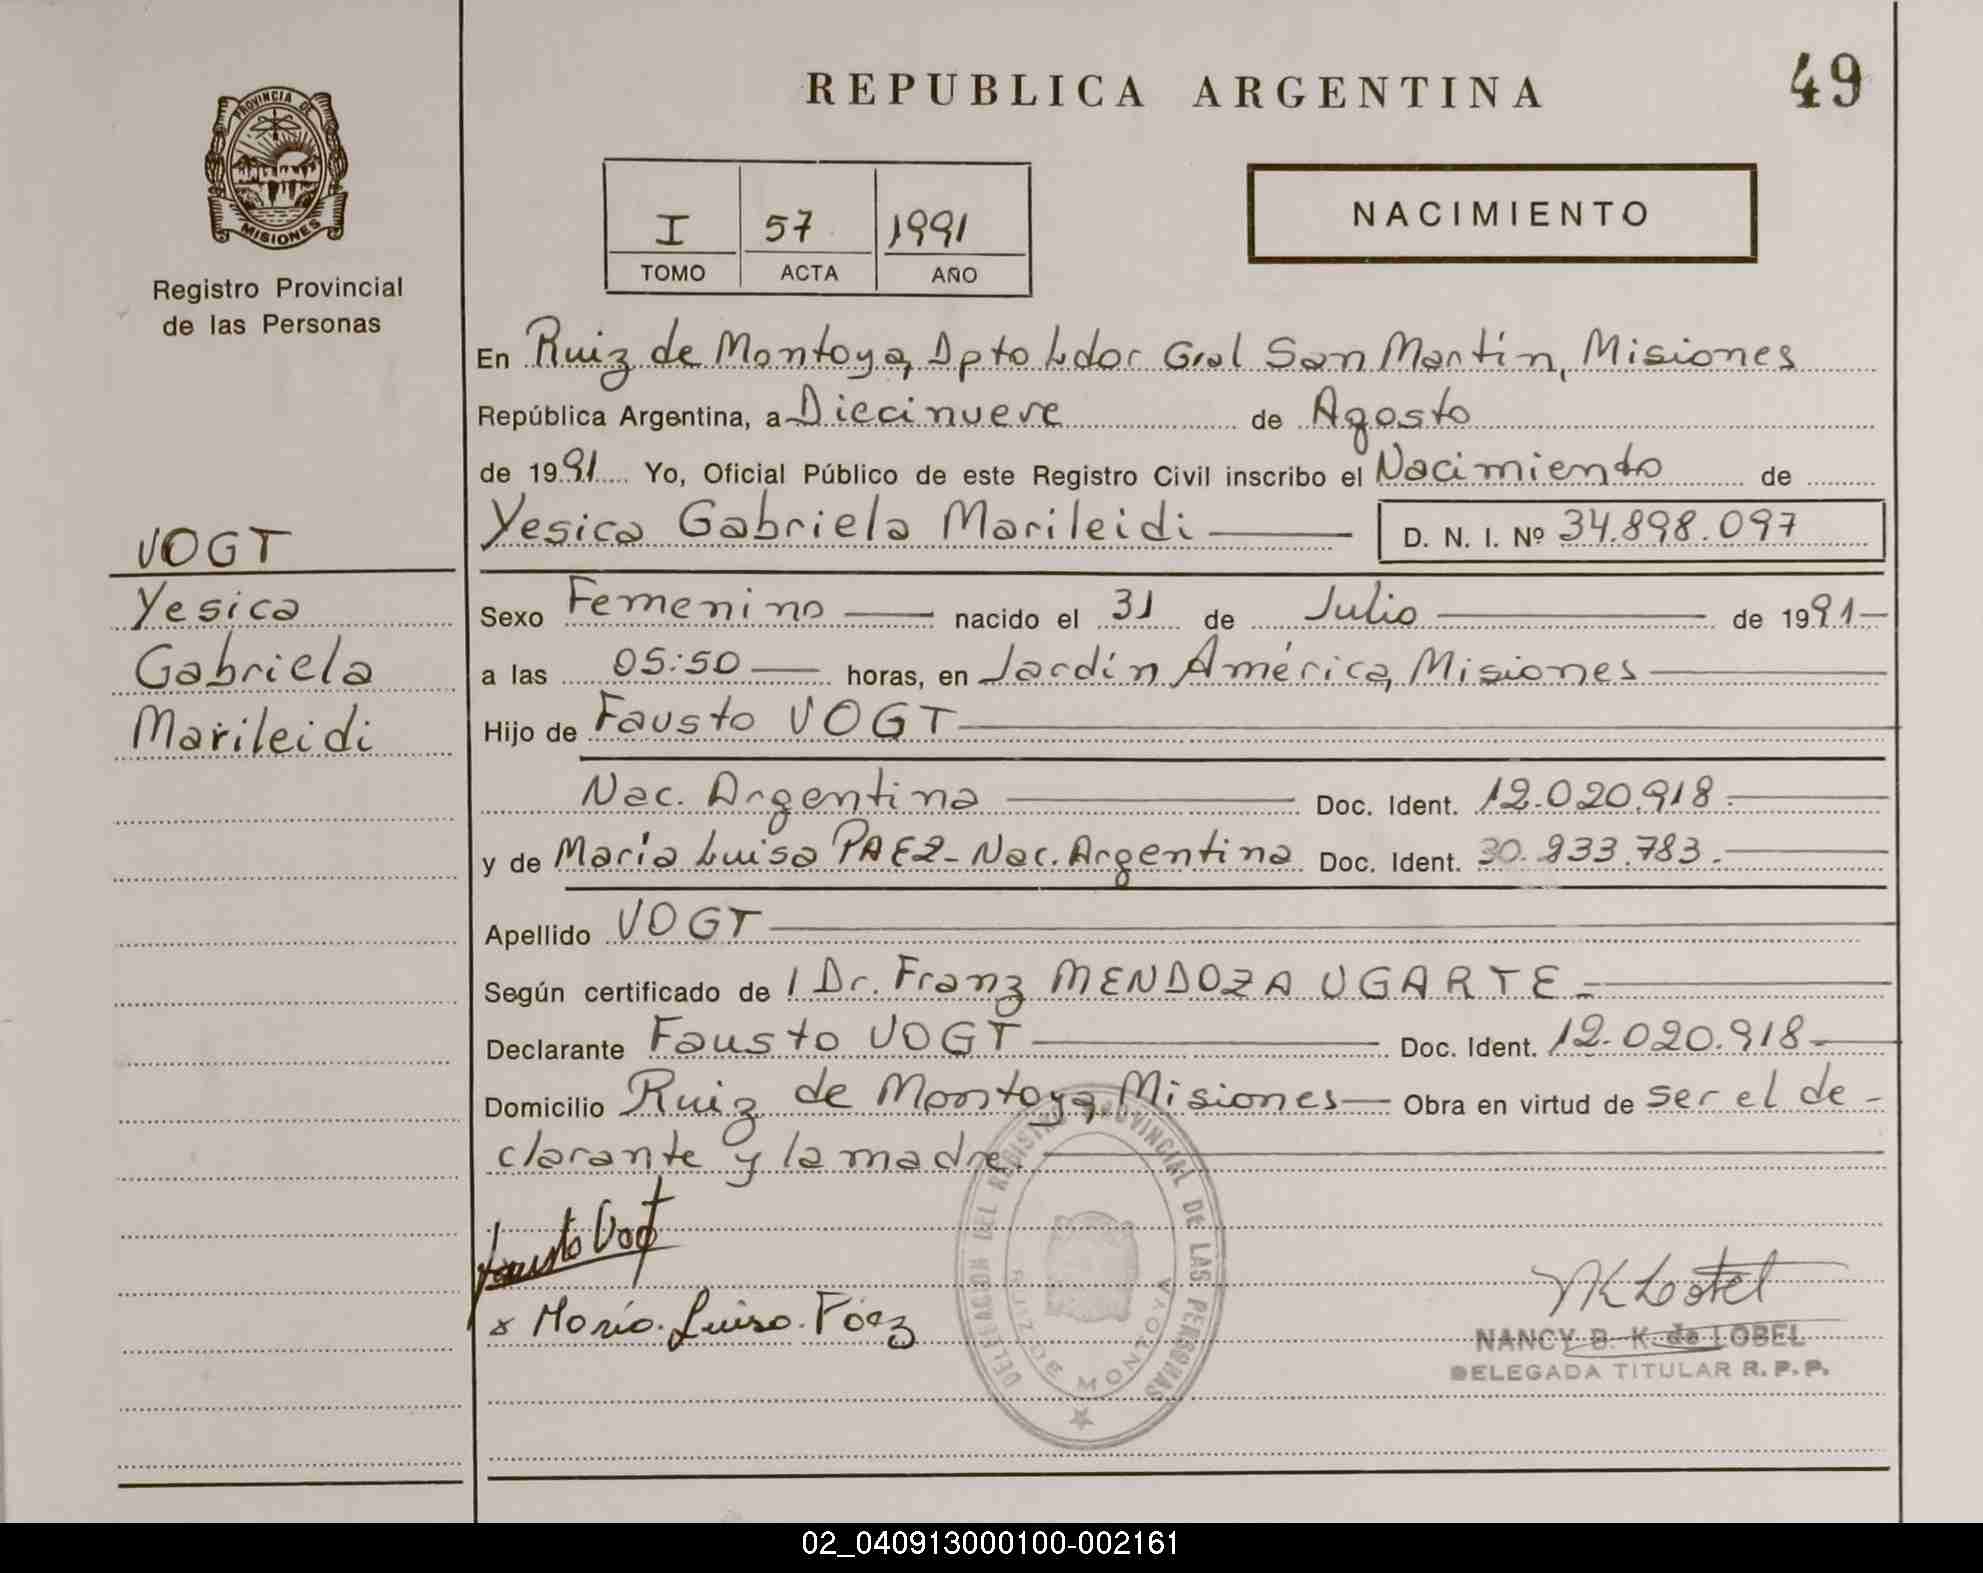 REPUBLICA ARGENTINA
49
PROVINCIA DE
MISIONES
Registro Provincial
de las Personas
I 57 1991
TOMO ACTA AÑO
NACIMIENTO
En Ruiz de Montoya, Dpto Ldor Gral San Martín, Misiones
República Argentina, a Diecinueve de Agosto
de 1991 Yo, Oficial Público de este Registro Civil inscribo el Nacimiento de
Yesica Gabriela Marileidi D. N. I. Nº 34.898.097
VOGT
Yesica
Gabriela
Marileidi
Sexo Femenino nacido el 31 de Julio de 1991
a las 05:50 horas, en Jardín América, Misiones
Hijo de Fausto VOGT
Nac. Argentina Doc. Ident. 12.020.918.
y de María Luisa PAEZ - Nac. Argentina Doc. Ident. 30.933.783.
Apellido VOGT
Según certificado de l Dr. Franz MENDOZA UGARTE -
Declarante Fausto VOGT Doc. Ident. 12.020.918
Domicilio Ruiz de Montoya, Misiones Obra en virtud de ser el de-
clarante y la madre.
Fausto Vogt
x María. Luisa. Páez
DELEGACION DEL REGISTRO PROVINCIAL DE LAS PERSONAS
RUIZ DE MONTOYA
NANCY B. K. de LOBEL
DELEGADA TITULAR R. P. P.
02_040913000100-002161